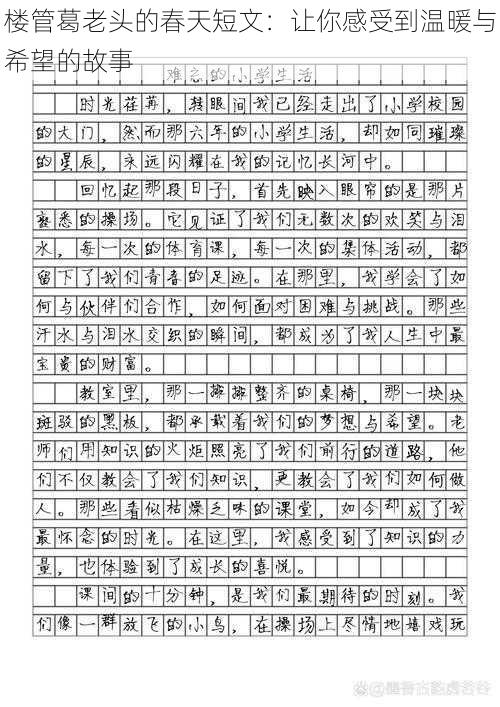 楼管葛老头的春天短文：让你感受到温暖与
希望的故事
难忘的小学生活
时光荏苒，转眼间我已经走出了小学校园
的大门，然而那六年的小学生活，却如同璀璨
的星辰，永远闪耀在我的记忆长河中。
回忆起那段日子，首先映入眼帘的是那片
熟悉的操场。它见证了我们无数次的欢笑与泪
水，每一次的体育课，每一次的集体活动，都
留下了我们青春的足迹。在那里，我学会了如
何与伙伴们合作，如何面对困难与挑战。那些
汗水与泪水交织的瞬间，都成为了我人生中最
宝贵的财富。
教室里，那一排排整齐的桌椅，那一块块
斑驳的黑板，都承载着我们的梦想与希望。老
师们用知识的火炬照亮了我们前行的道路，他
们不仅教会了我们知识，更教会了我们如何做
人。那些看似枯燥乏味的课堂，如今却成了我
最怀念的时光。在这里，我感受到了知识的力
量，也体验到了成长的喜悦。
课间的十分钟，是我们最期待的时刻。我
们像一群放飞的小鸟，在操场上尽情地嬉戏玩